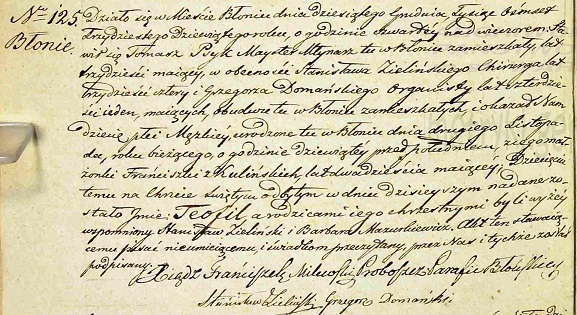 Nro 125.
Błonie.
Działo się w Mieście Błoniu dnia dziesiątego Grudnia, Tysiąc Ośmset
trzydziestego Dziewiątego roku, o godzinie czwartej nad wieczorem. Sta-
wił się Tomasz Młynarz tu w Błoniu zamieszkały, lat
trzydzieści maiący, w obecności Stanisława Zielińskiego Chirurga lat
trzydzieści cztery i Grzegorza Domańskiego Organisty lat czterdzie-
ści ieden, maiących, obudwu tu w Błoniu zamieszkałych, i okazał Nam
Dziecię płci Męzkiey, urodzone tu w Błoniu dnia drugiego Listopa-
da, roku bieżącego, o godzinie dziewiątey przed południem, z iego mał-
żonki Franciszki z Kulińskich, lat dwadzieścia maiącey. Dziecięciu
temu na Chrzcie Świętym odbytym w dniu dzisieyszym nadane zo-
stało Imie Teofil, a rodzicami iego chrzestnymi byli wyżey
wspomniony Stanisław Zieliński i Barbara Mazurkiewicz. Akt ten stawaią-
cemu pisać nieumieiącemu, i świadkom przeczytany, przez Nas i tychże został
podpisany.
Xiądz Franciszek Milewski Proboszcz Parafii Błońskiey
Stanisław Zieliński Grzegorz Domański